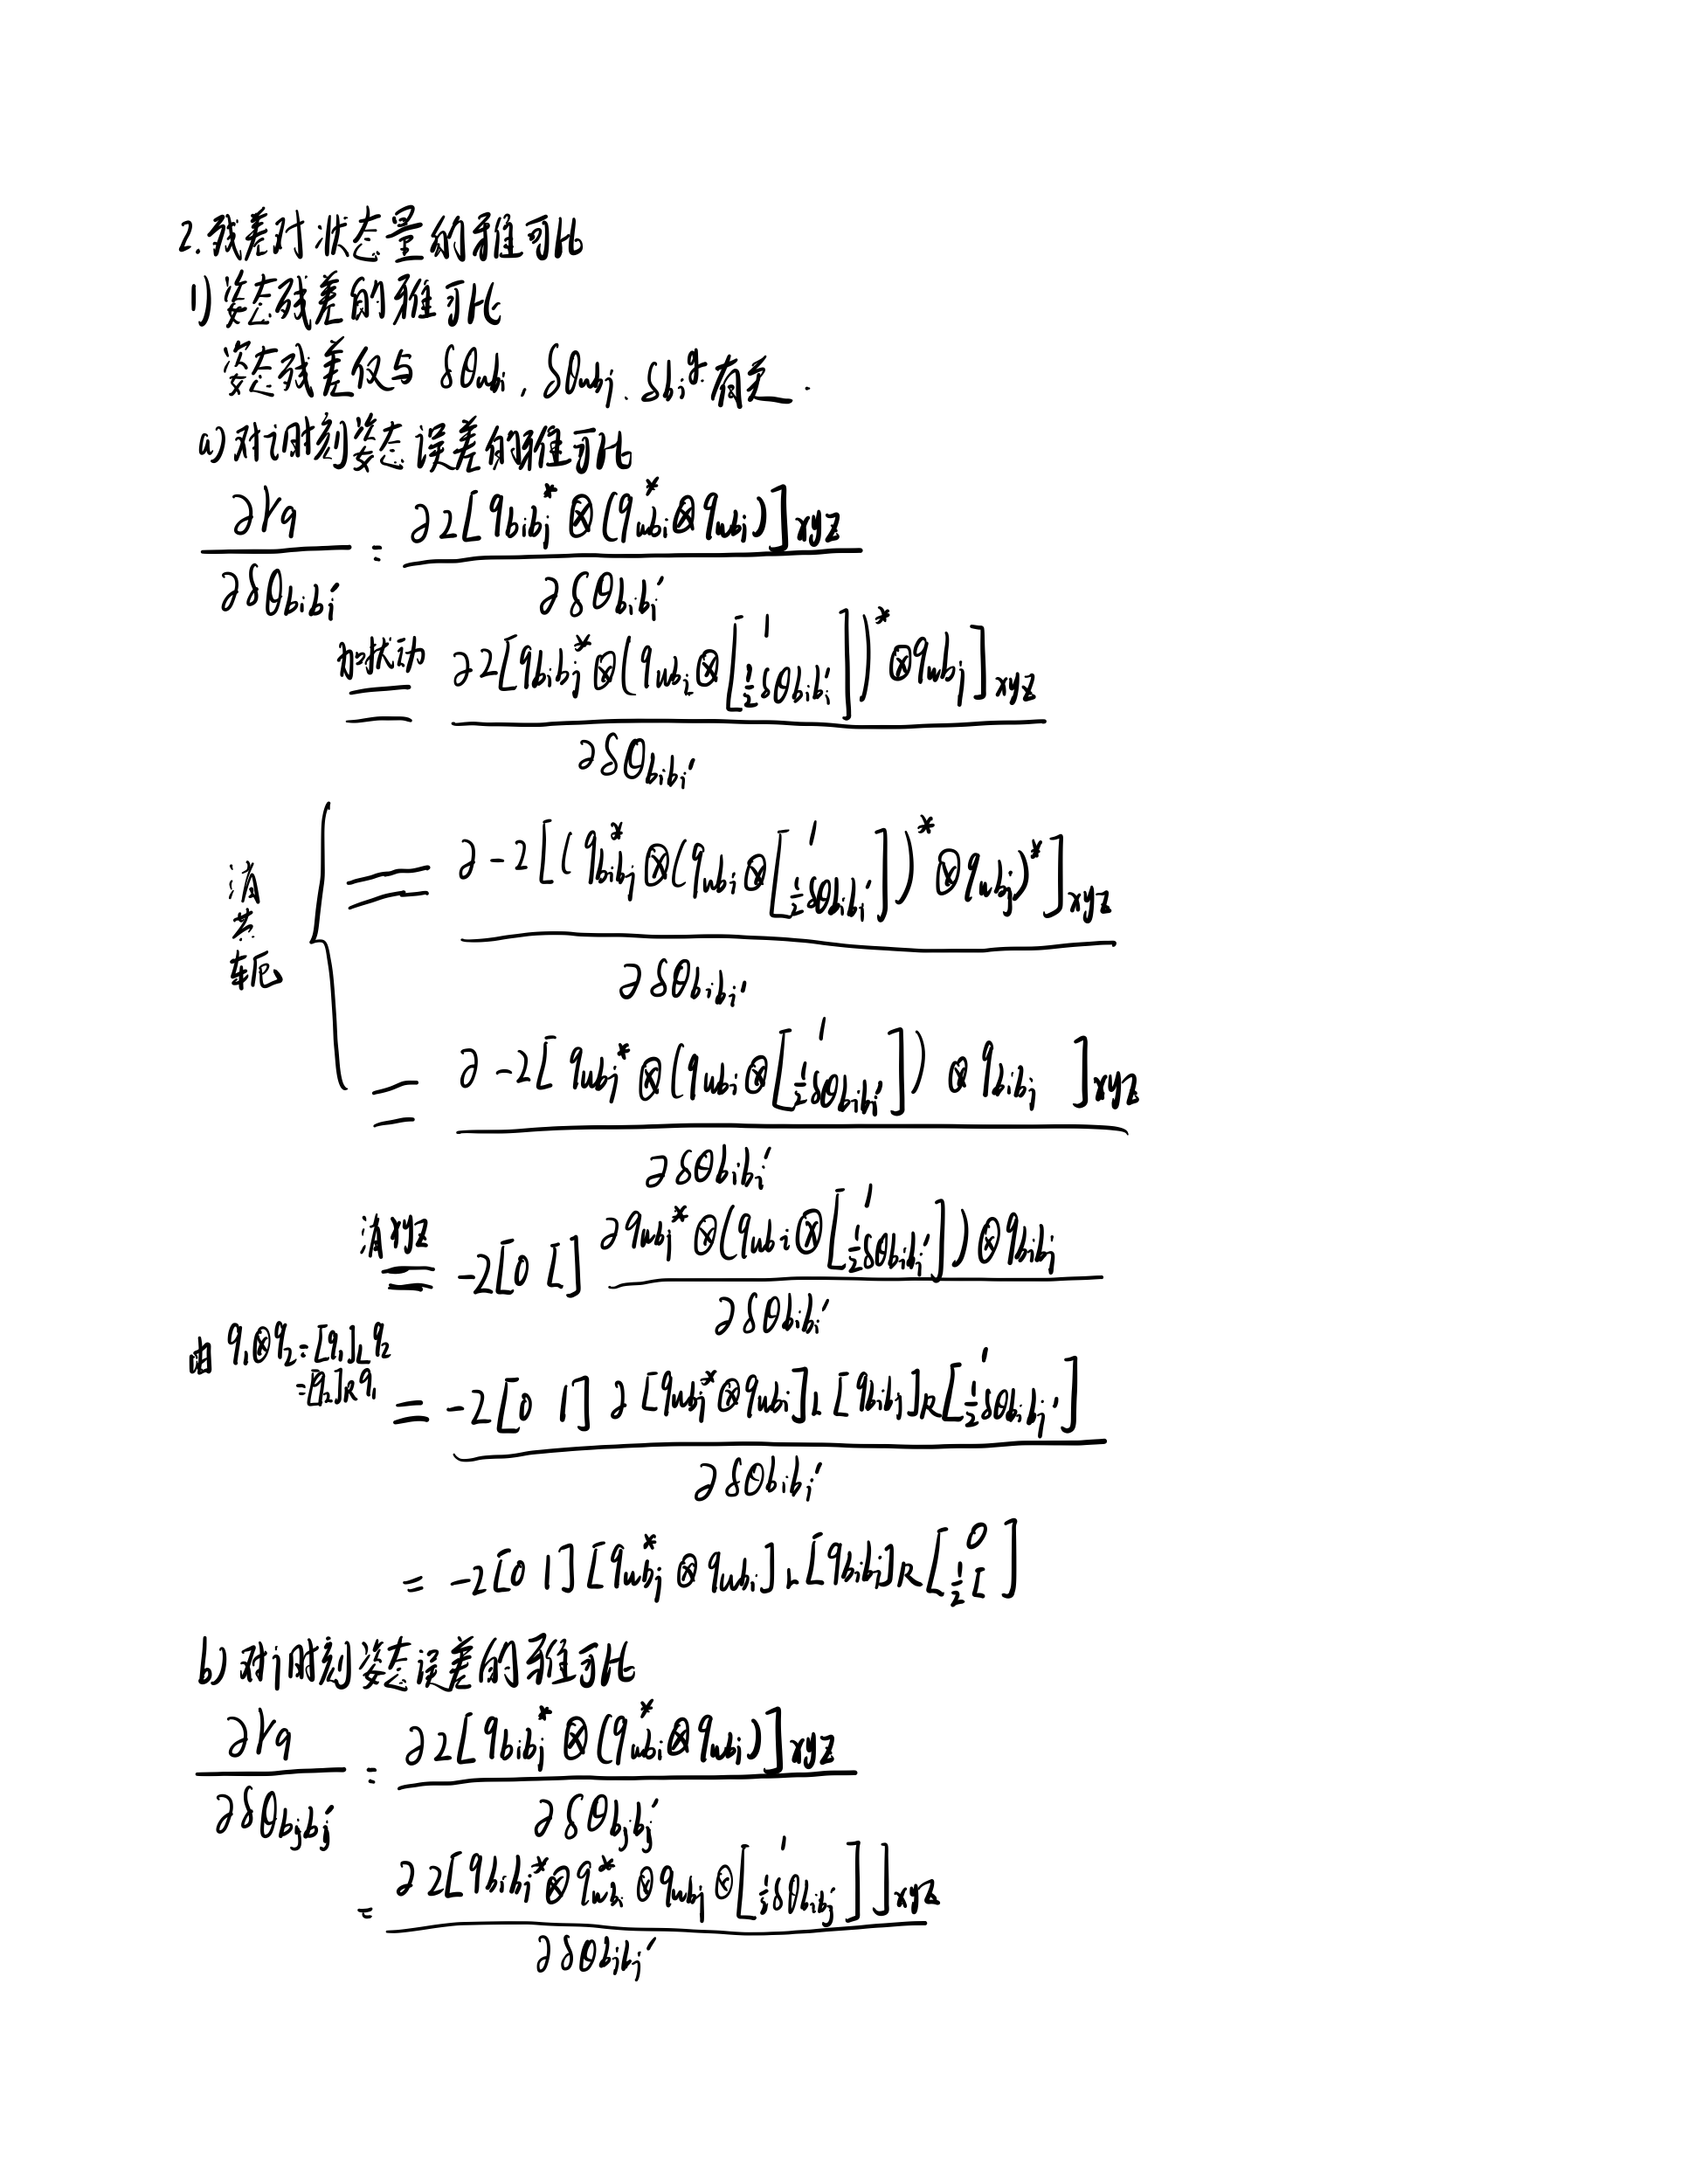 2. 残差对状态量的雅可比
1) 姿态残差的雅可比
姿态残差仅与 δθwbi, δθwbj、δbi^g 有关.
a) 对i时刻姿态误差的雅可比
∂rq / ∂δθbibi' = ∂2[qbibj* ⊗ (qwbi* ⊗ qwbj)]xyz / ∂δθbibi'
加扰动 = ∂2[qbibj* ⊗ (qwbi ⊗ [1; 1/2 δθbibi'])* ⊗ qwbj]xyz / ∂δθbibi'
消共轭 { = ∂-2[(qbibj* ⊗ (qwbi ⊗ [1; 1/2 δθbibi'])* ⊗ qwbj)*]xyz / ∂δθbibi'
= ∂-2[qwbj* ⊗ (qwbi ⊗ [1; 1/2 δθbibi']) ⊗ qbibj]xyz / ∂δθbibi'
消xyz = -2[0 I] ∂qwbj* ⊗ (qwbi ⊗ [1; 1/2 δθbibi']) ⊗ qbibj / ∂δθbibi'
由 q1⊗q2 = [q1]L q2
= [q2]R q1
= -2[0 I] ∂[qwbj* ⊗ qwbi]L [qbibj]R [1; 1/2 δθbibi'] / ∂δθbibi'
= -2[0 I] [qwbj* ⊗ qwbi]L [qbibj]R [0; 1/2 I]
b) 对j时刻姿态误差的雅可比
∂rq / ∂δθbjbj' = ∂2[qbibj* ⊗ (qwbi* ⊗ qwbj)]xyz / ∂δθbjbj'
= ∂2[qbibj* ⊗ qwbi* ⊗ qwbj ⊗ [1; 1/2 δθbjbj']]xyz / ∂δθbjbj'